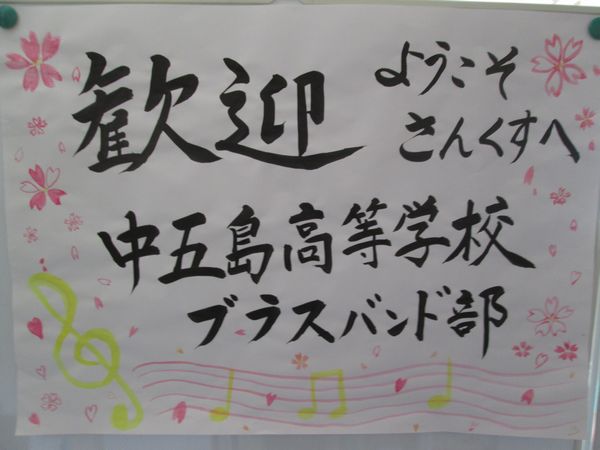 歓迎
ようこそ
さんくすへ
中五島高等学校
ブラスバンド部